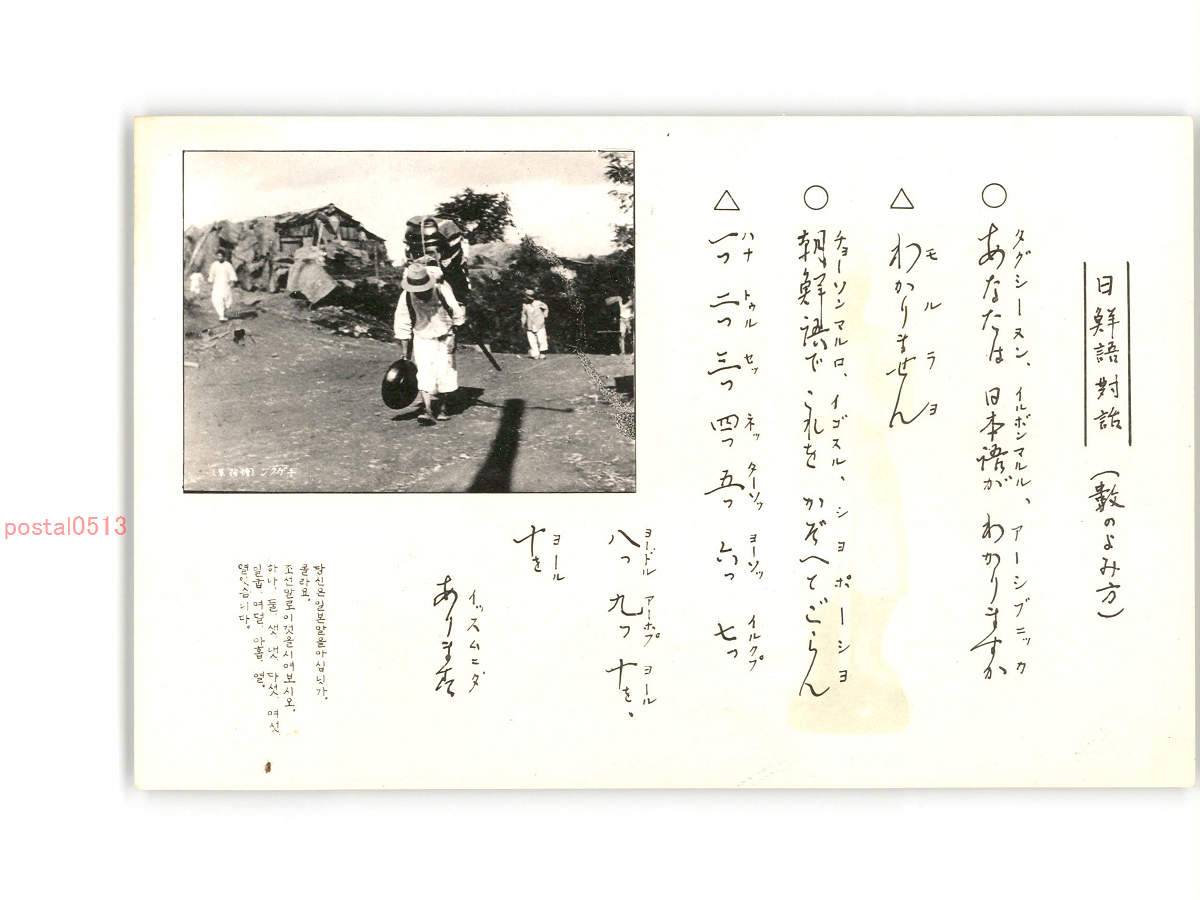 日鮮語對話 (數のよみ方)
タグシーヌン、イルボンマルル、アーシブニッカ
○ あなたは 日本語が わかりますか
モルラヨ
△ わかりません
チョーソンマルロ、イゴスル、ショポーショ
○ 朝鮮語で これを かぞへてごらん
ハナ トゥル セッ ネッ ターソッ ヨーソッ イルクプ
△ 一つ 二つ 三つ 四つ 五つ 六つ 七つ
ヨードル アーホプ ヨール
八つ 九つ 十を、
ヨール
十を
イッスムニダ
あります
당신은일본말을아심닛가.
몰라요.
조선말로이것을시여보시오.
하나, 둘, 셋, 넷, 다섯, 여섯
일곱, 여덜, 아홉, 열,
열잇슴니다.
チゲクン
postal0513